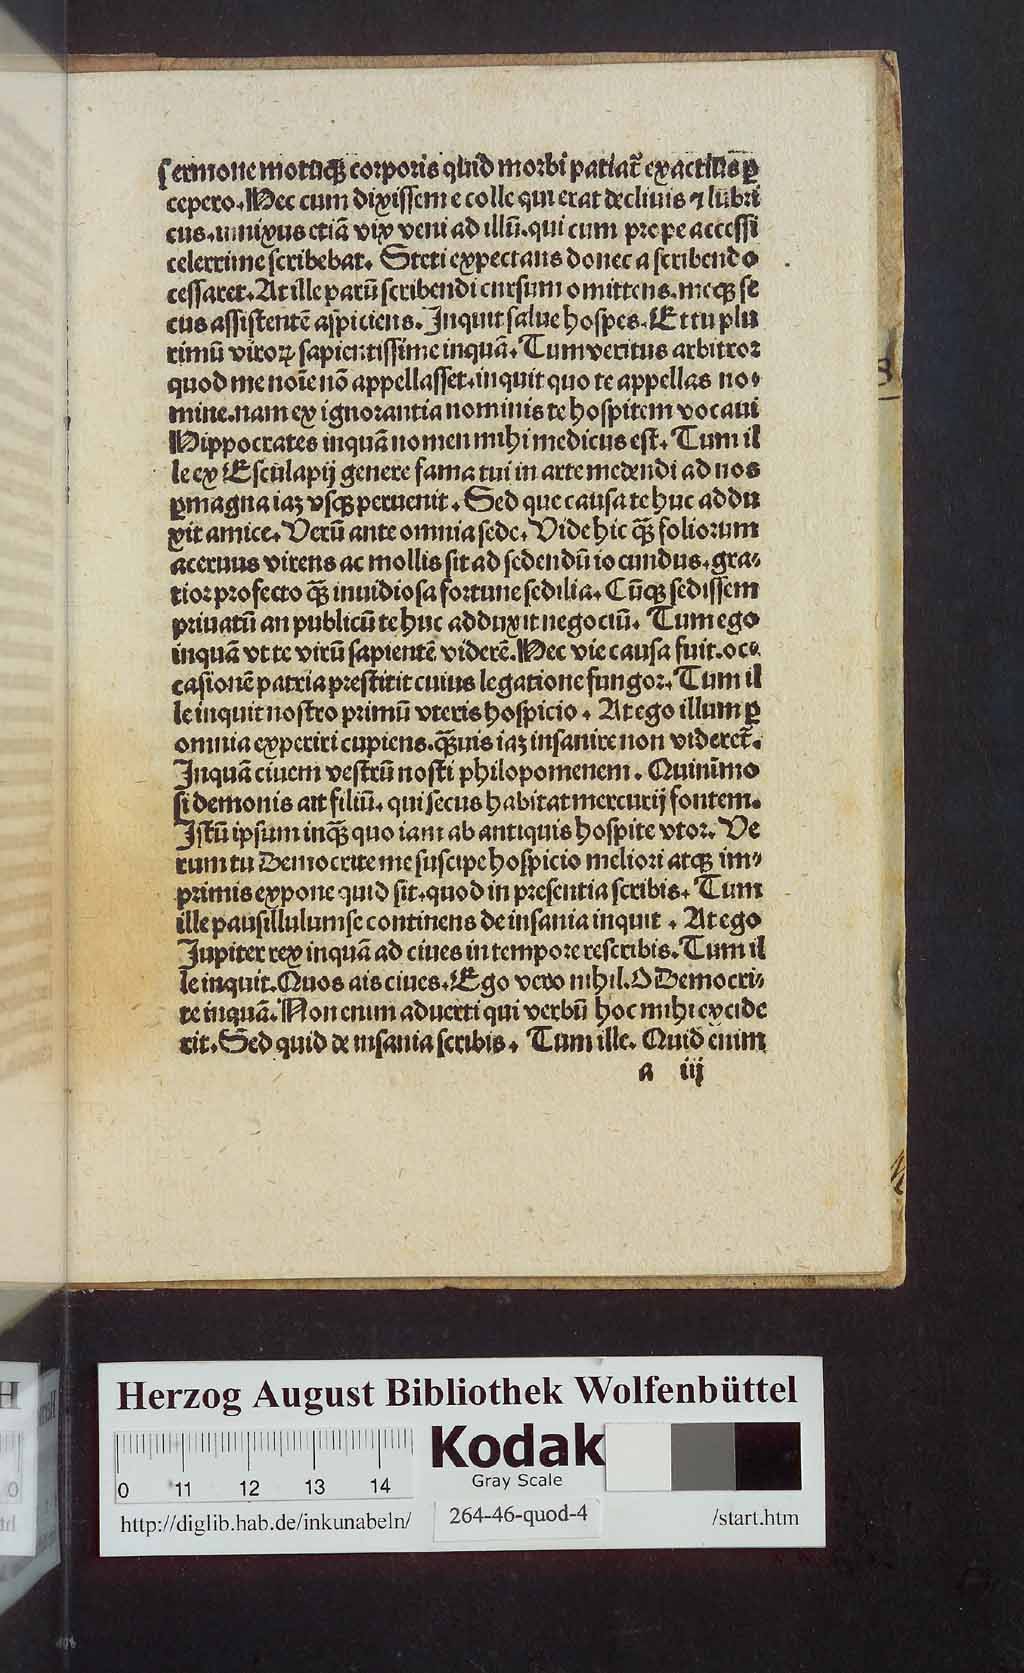 sermone motuqꝫ corporis quid morbi patiat᷑ exactius ꝑ
cepero. Hec cum dixissem e colle qui erat declinis ⁊ lubri
cus. innixus etiā vix veni ad illū. qui cum prope accessi
celerrime scribebat. Steti expectans donec a scribendo
cessaret. At ille parū scribendi cursum omittens. meqꝫ se
cus assistentē aspiciens. Inquit salue hospes. Et tu plu
rimū viroꝝ sapientissime inquā. Tum veritus arbitror
quod me noīe nō appellasset. inquit quo te appellas no⸗
mine. nam ex ignorantia nominis te hospitem vocaui
Hippocrates inquā nomen mihi medicus est. Tum il
le ex Esculapij genere fama tui in arte medendi ad nos
ꝑmagna iaꝫ vsqꝫ peruenit. Sed que causa te huc addu
xit amice. Verū ante omnia sede. Vide hic qꝫ̄ foliorum
aceruus virens ac mollis sit ad sedendū iocundus. gra⸗
tior profecto qꝫ̄ inuidiosa fortune sedilia. Cūqꝫ sedissem
priuatū an publicū te huc adduxit negociū. Tum ego
inquā vt te virū sapientē viderē. Hec vie causa fuit. oc⸗
casionē patria prestitit cuius legatione fungor. Tum il
le inquit nostro primū vteris hospicio. At ego illum ꝑ
omnia experiri cupiens. qꝫ̄uis iaꝫ insanire non videret᷑.
Inquā ciuem vestrū nosti philopomenem. Quinīmo
si demonis ait filiū. qui secus habitat mercurij fontem.
Istū ipsum inqꝫ̄ quo iam ab antiquis hospite vtor. Ve
rum tu Democrite me suscipe hospicio meliori atqꝫ im⸗
primis expone quid sit. quod in presentia scribis. Tum
ille pausillulum se continens de insania inquit. At ego
Jupiter rex inquā ad ciues in tempore rescribis. Tum il
le inquit. Quos ais ciues. Ego vero nihil. O Democri⸗
te inquā. Non enim aduerti qui verbū hoc mihi excide
rit. Sed quid de insania scribis. Tum ille. Quid enim
a iij
Herzog August Bibliothek Wolfenbüttel
Kodak
Gray Scale
0 11 12 13 14
http://diglib.hab.de/inkunabeln/ 264-46-quod-4 /start.htm